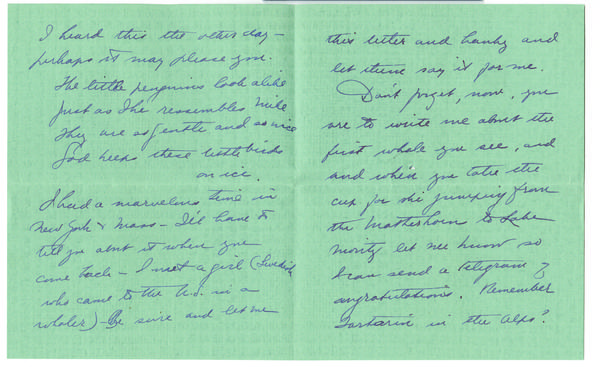 I heard this the other day –
perhaps it may please you.
The little penguins look alike
Just as Ike resembles Mike
They are so gentle and so nice
God keeps these little birds
on ice.
I had a marvelous time in
New York & Mass – I'll have to
tell you about it when you
come back – I met a girl (Swedish
who came to the U.S. in a
whaler) – Be sure and let me
this letter and hanky and
let them say it for me.
Don't forget, now, you
are to write me about the
first whale you see, and
and when you take the
cup for ski jumping from
the Matterhorn to Lake
Moritz let me know so
I can send a telegram of
congratulations. Remember
Tartarin in the Alps?